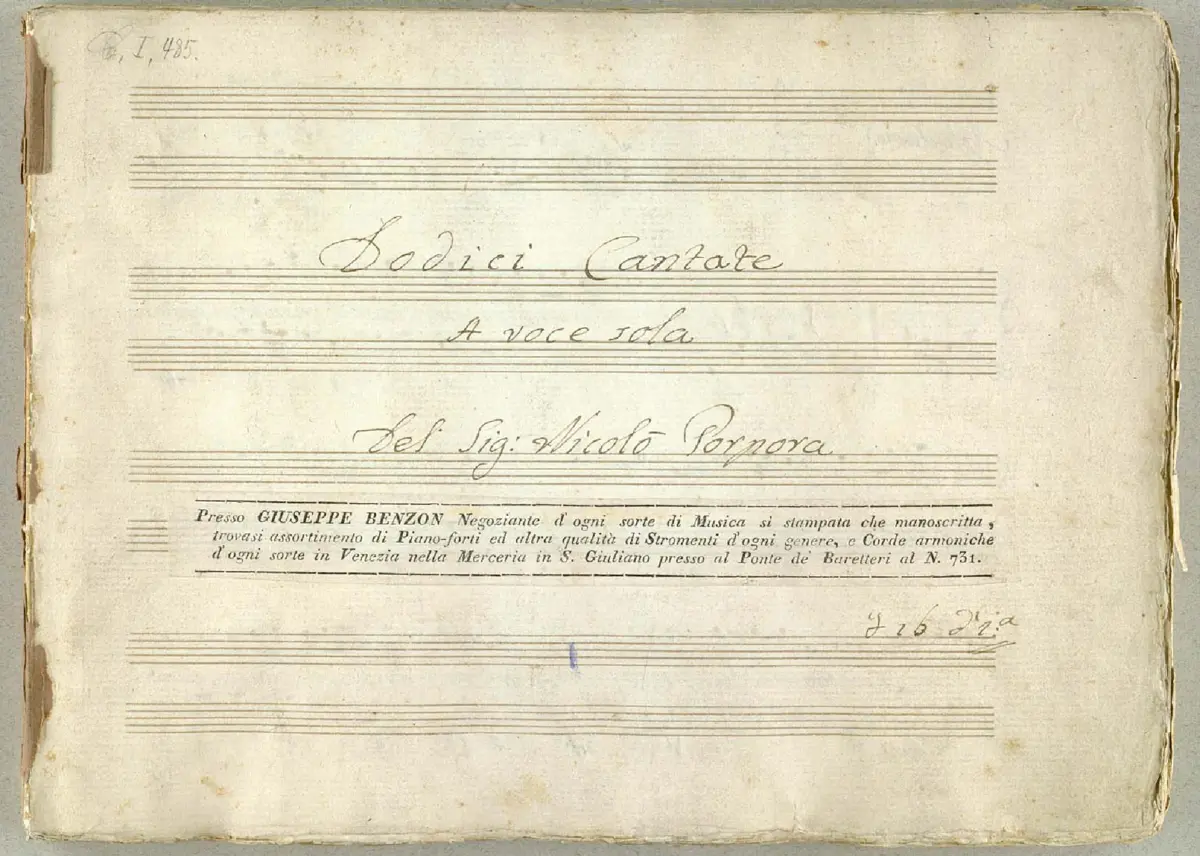 I, 485.
Dodici Cantate
A voce sola
Del Sig: Nicolò Porpora
Presso GIUSEPPE BENZON Negoziante d'ogni sorte di Musica si stampata che manoscritta,
trovasi assortimento di Piano-forti ed altra qualità di Stromenti d'ogni genere, e Corde armoniche
d'ogni sorte in Venezia nella Merceria in S. Giuliano presso al Ponte de' Baretteri al N. 731.